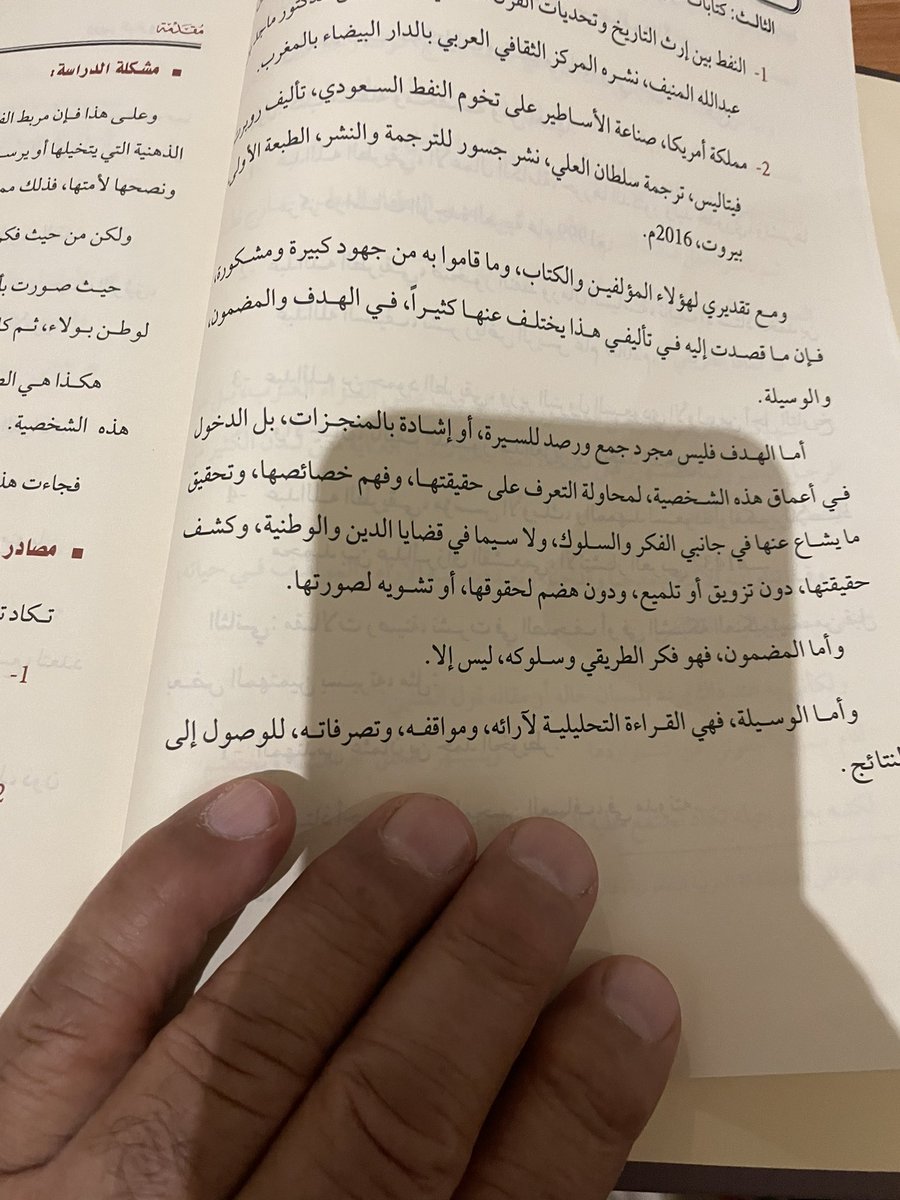 الثالث: كتابات
1- النفط بين إرث التاريخ وتحديات القرن
عبدالله المنيف، نشره المركز الثقافي العربي بالدار البيضاء بالمغرب.
2- مملكة أمريكا، صناعة الأساطير على تخوم النفط السعودي، تأليف روبرت
فيتاليس، ترجمة سلطان العلي، نشر جسور للترجمة والنشر، الطبعة الأولى
بيروت، 2016م.
ومع تقديري لهؤلاء المؤلفين والكتاب، وما قاموا به من جهود كبيرة ومشكورة،
فإن ما قصدت إليه في تأليفي هذا يختلف عنها كثيراً، في الهدف والمضمون،
والوسيلة.
أما الهدف فليس مجرد جمع ورصد للسيرة، أو إشادة بالمنجزات، بل الدخول
في أعماق هذه الشخصية، لمحاولة التعرف على حقيقتها، وفهم خصائصها، وتحقيق
ما يشاع عنها في جانبي الفكر والسلوك، ولا سيما في قضايا الدين والوطنية، وكشف
حقيقتها، دون تزويق أو تلميع، ودون هضم لحقوقها، أو تشويه لصورتها.
وأما المضمون، فهو فكر الطريقي وسلوكه، ليس إلا.
وأما الوسيلة، فهي القراءة التحليلية لآرائه، ومواقفه، وتصرفاته، للوصول إلى
لنتائج.
مُقدّمة
▪ مشكلة الدراسة:
وعلى هذا فإن مربط
الذهنية التي يتخيلها أو
ونصحها لأمتها، فذلك
ولكن من حيث
حيث صورت
لوطن بولاء، ثم
هكذا هي
هذه الشخصية.
فجاءت
▪ مصادر
تكاد
1-
2